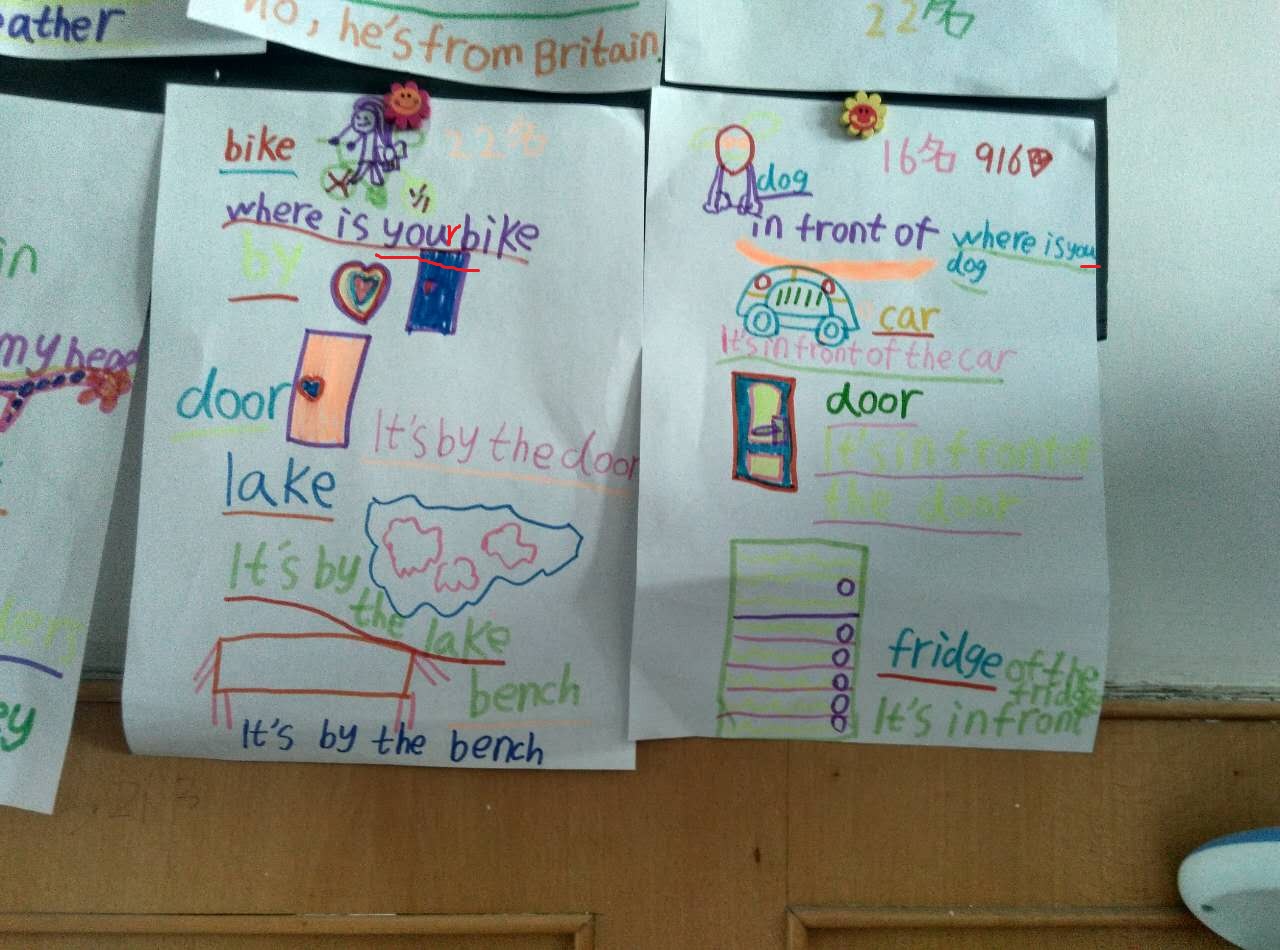 ather
no, he's from Britain.
22名
in
my head
ey
bike
22名
where is your bike
by
door
It's by the door
lake
It's by
the lake
bench
It's by the bench
16名 916
dog
in front of
where is you
dog
car
It's in front of the car
door
It's in front of
the door
fridge
of the
fridge
It's in front